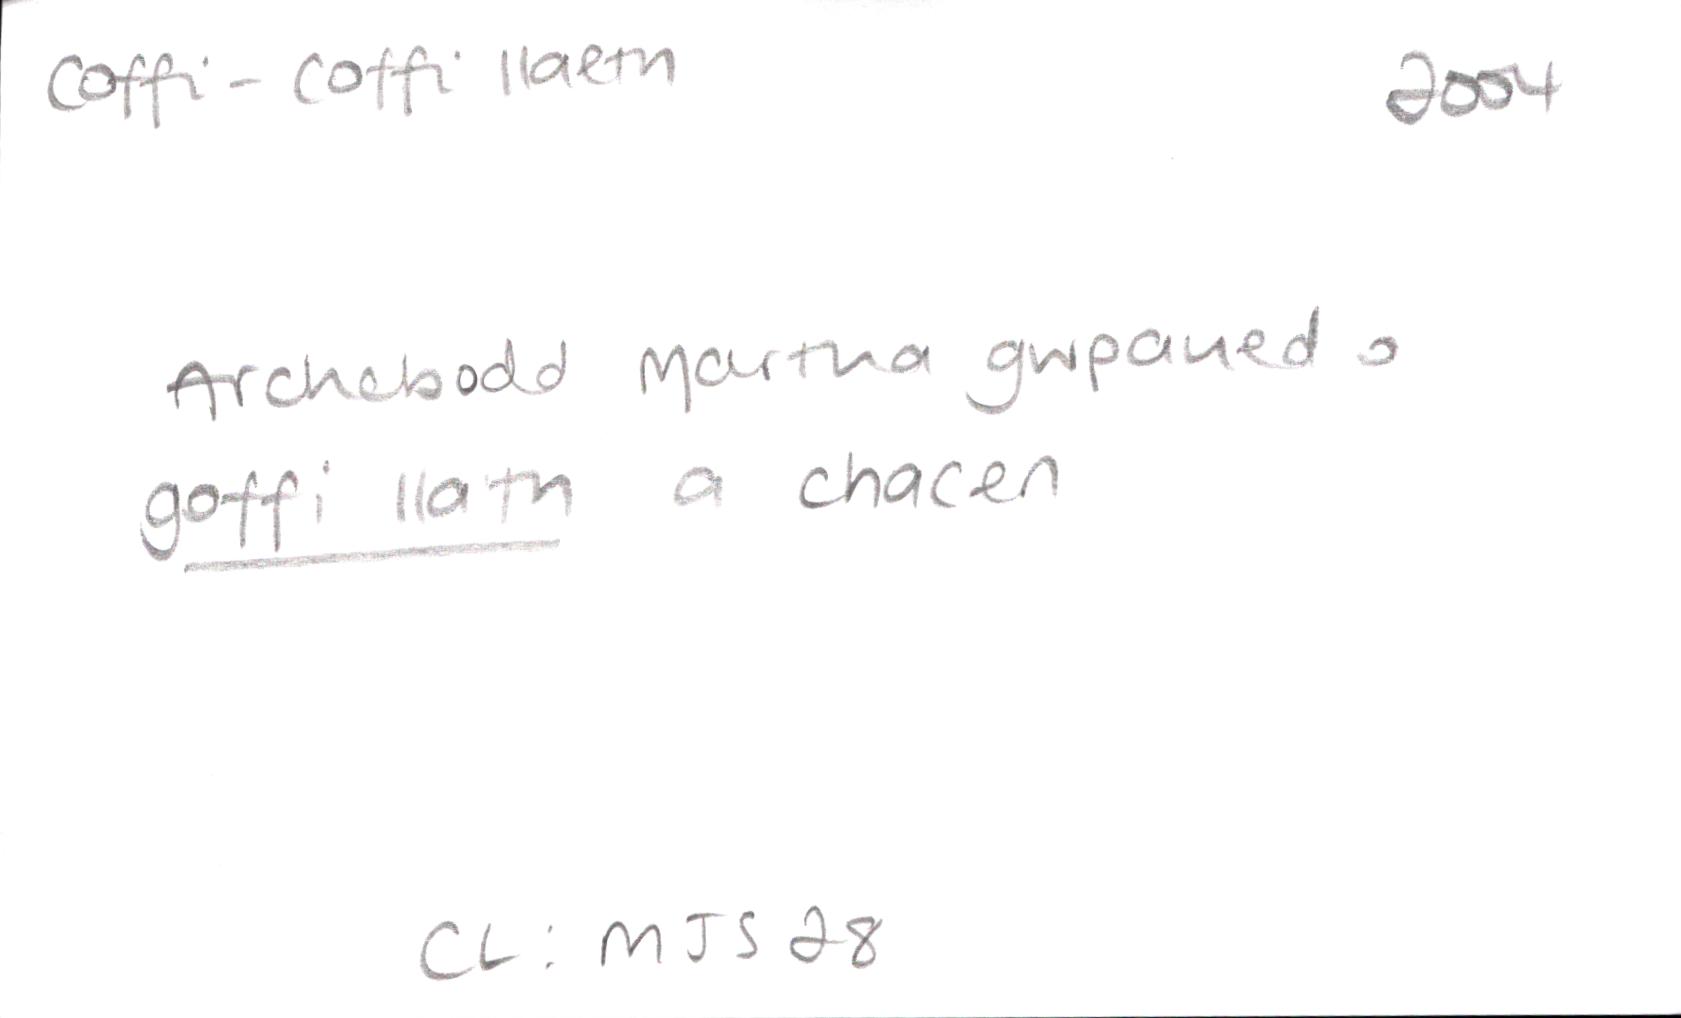 Coffi - coffi llaeth 2004
Archebodd Martha gwpaned o
goffi llath a chacen
CL: MJS 28